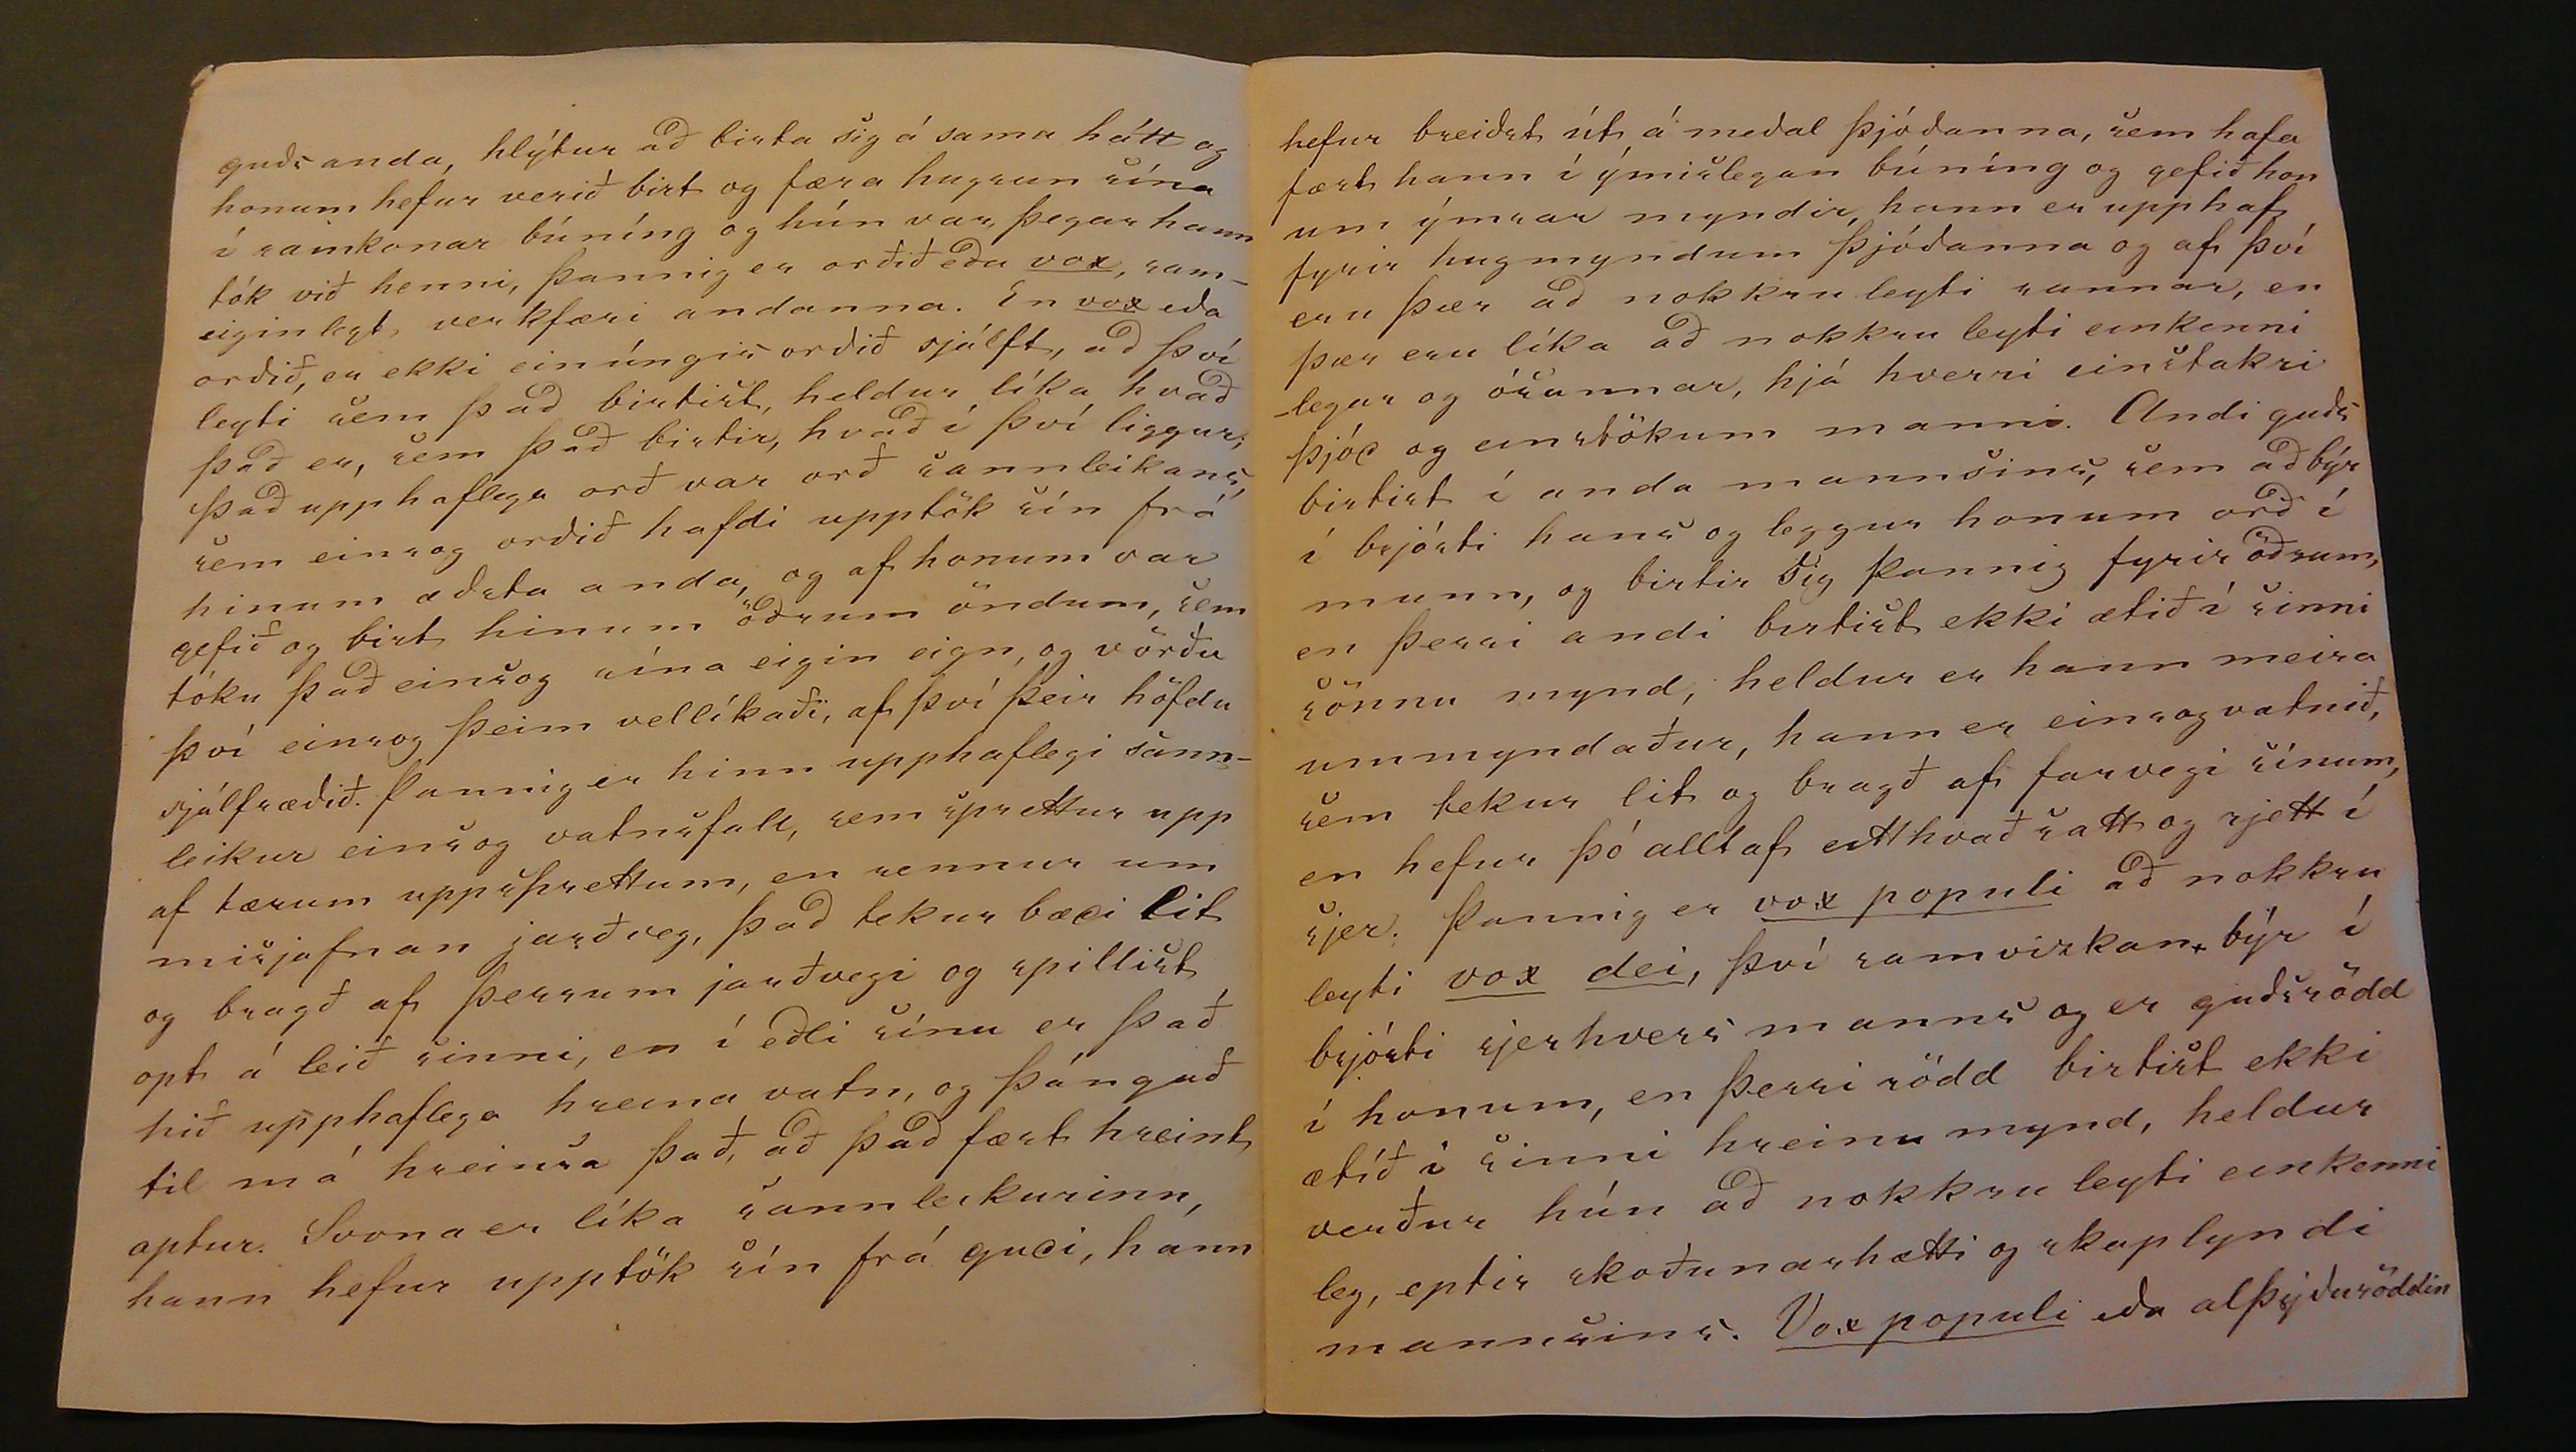 guðs anda, hlýtur að birta sig á sama hátt og
honum hefur verið birt og færa hugsun sína
í samskonar búníng og hún var, þegar hann
tók við henni, þannig er orðið eða vox, sam-
eiginlegt verkfæri andanna. En vox eða
orðið, er ekki einúngis orðið sjálft, að því
leyti sem það birtist, heldur líka hvað
það er, sem það birtir, hvað í því liggur;
það upphaflega orð var orð sannleikans,
sem einsog orðið hafdi upptök sín frá
hinum æðsta anda, og af honum var
gefið og birt hinum öðrum öndum, sem
tóku það einsog sína eigin eign, og vörðu
því einsog þeim vellíkaði, af því þeir höfdu
sjálfræðið. Þannig er hinn upphaflegi sann-
leikur einsog vatnsfall, sem sprettur upp
af tærum uppsprettum, en rennur um
misjafnan jarðveg, það tekur bæði lit
og bragð af þessum jarðvegi og spillist
opt á leið sinni, en í eðli sínu er það
hið upphaflega hreina vatn, og þángað
til má hreinsa það, að það fæst hreint
aptur. Svona er líka sannleikurinn,
hann hefur upptök sín frá guði, hann
hefur breiðst út á meðal þjóðanna, sem hafa
fært hann í ýmislegan búníng og gefið hon
um ýmsar myndir, hann er upphaf
fyrir hugmyndum þjóðanna og af því
eru þær að nokkru leyti sannar, en
þær eru líka að nokkru leyti einkenni
-legar og ósannar, hjá hverri einstakri
þjóð og einstökum manni. Andi guðs
birtist í anda mannsins, sem að býr
í brjósti hans og leggur honum orð í
munn, og birtir sig þannig fyrir öðrum,
en þessi andi birtist ekki ætið í sinni
sönnu mynd, heldur er hann meira
ummyndaður, hann er einsog vatnið,
sem tekur lit og bragð af farvegi sínum,
en hefur þó alltaf eitthvað satt og rjett í
sjer. Þannig er vox populi að nokkru
leyti vox dei, því samvizkan býr í
brjósti sjerhvers manns og er guðsrödd
í honum, en þessi rödd birtist ekki
ætíð í sinni hreinu mynd, heldur
verður hún að nokkru leyti einkenni
leg, eptir skoðunarhætti og skaplyndi
mannsins. Vox populi eða alþýðuröddin